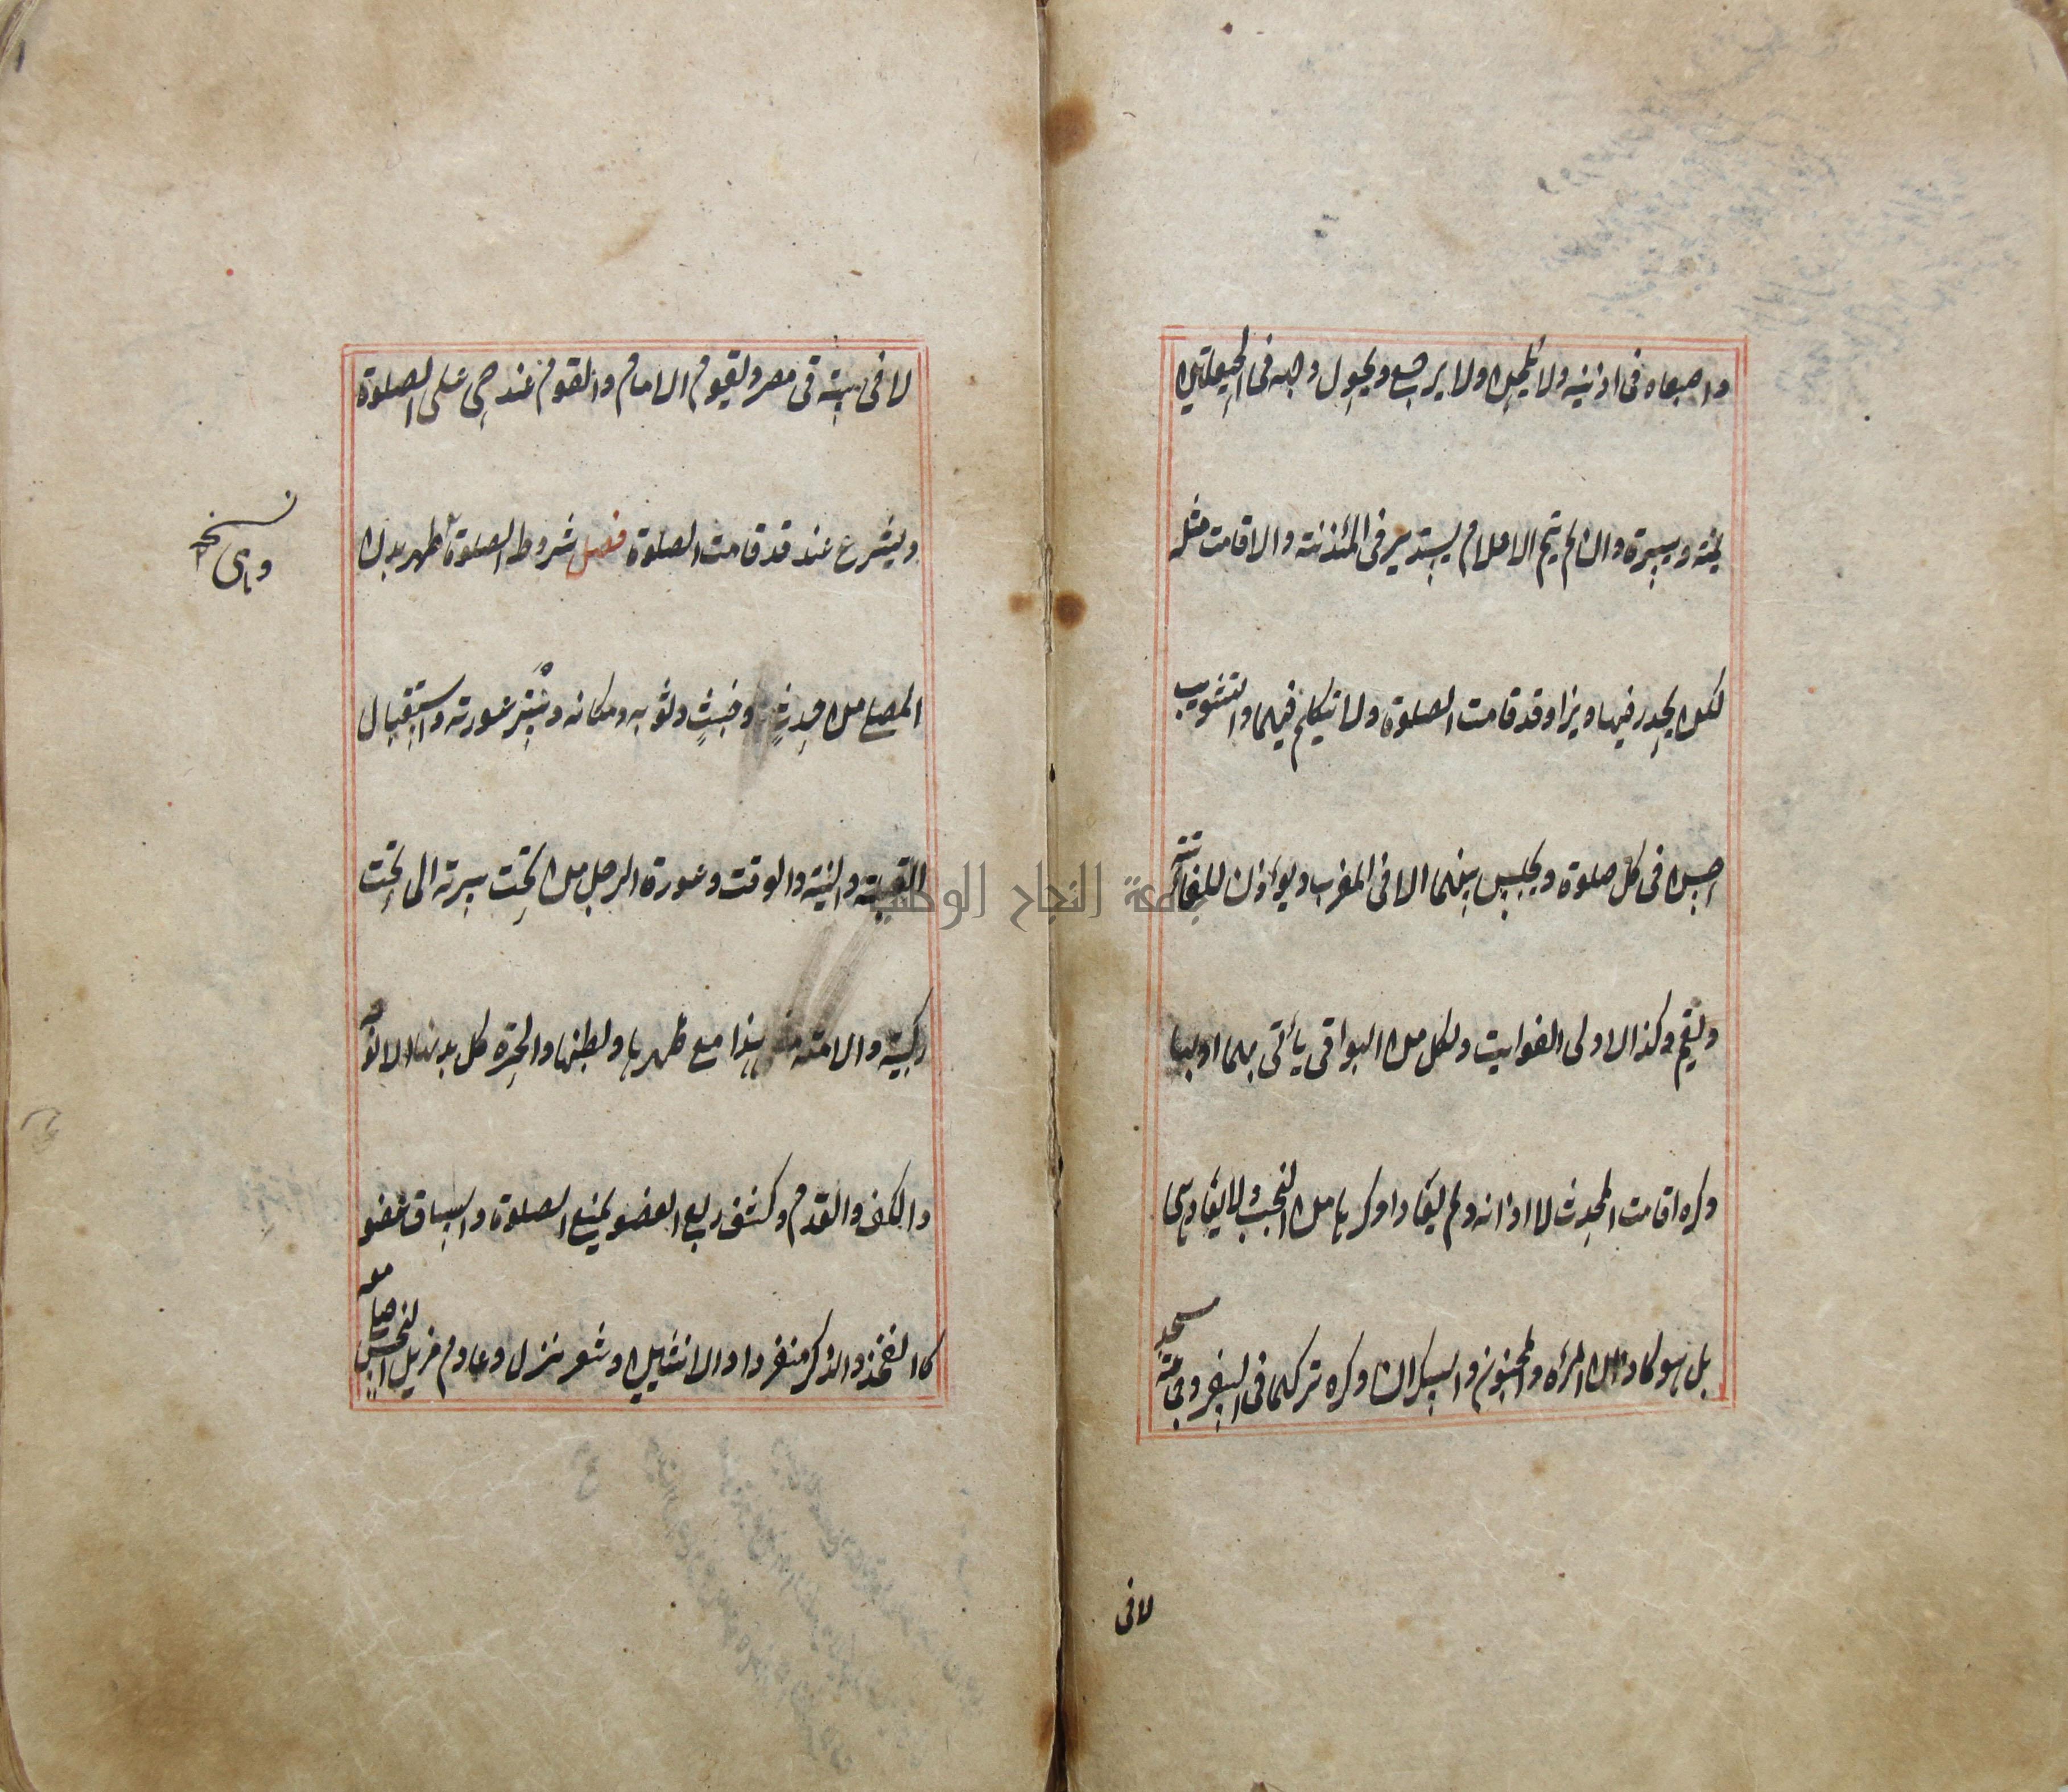 واصبعاه فى اذنيه ولا يلحن ولا يرجع ويحول وجهه فى الحيعلتين
يمنة ويسرة وان لم يتم الاعلام يستدير فى المئذنة والاقامت مثله
لكن يحدر فيها ويزاد قد قامت الصلوة ولا يتكلم فيهما والتثويب
احسن فى كل صلوة ويجلس بينهما الا فى المغرب ويؤذن للفائتة
ويقيم وكذا الاولى الفوايت ولكل من البواقى يأتى بهما او بها
وكره اقامت المحدث لا اذانه ولم يعادا وكرها من الجنب ولا يعاد هى
بل هو كاذان المرأه والمجنون والسكران وكره تركهما فى السفر وجماعة مسجد
لا فى
لا فى بيته فى مصر ويقوم الامام والقوم عند حى على الصلوة
ويشرع عند قد قامت الصلوة فصل شروط الصلوة طهر بدن
المصلى من حدث وخبث وثوبه ومكانه وستر عورته واستقبال
القبلة والنية والوقت وعورة الرجل من تحت سرته الى تحت
ركبتيه والامة هذا مع ظهرها وبطنها والحرة كل بدنها الا الوجه
والكف والقدم وكشف ربع العضو يمنع الصلوة والساق عضو
كالفخذ والذكر منفردا والانثيين وشعر نزل وعادم مزيل النجس صلى معه
وهى نسخه
جامعة النجاح الوطنية